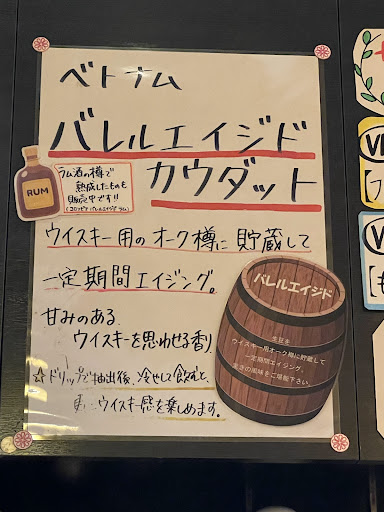 ベトナム
バレルエイジド
カウダット
RUM
ラム酒の樽で
熟成したものも
販売中です!!
(コロンビア バレルエイジド ラム)
ウイスキー用のオーク樽に貯蔵して
一定期間エイジング。
甘みのある、
ウイスキーを思わせる香り
☆ドリップで抽出後、冷やして飲むと、
更にウイスキー感を楽しめます。
バレルエイジド
生豆を
ウイスキー用オーク樽に貯蔵して
一定期間エイジング。
驚きの風味をご堪能下さい